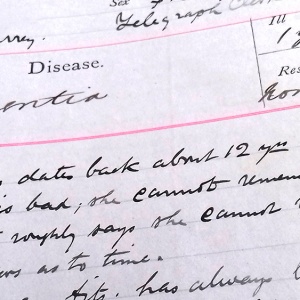 Sex
Ill
Telegraph
rrey.
1 y
Disease.
Res
entia
dates back about 12 yrs
is bad; she cannot remem
roughly says she cannot
as to time.
has always